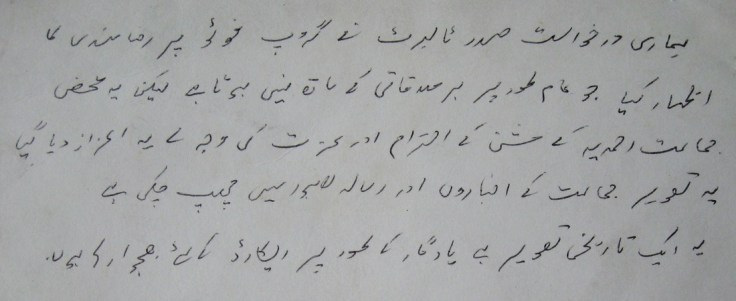 ہماری درخواست صدر ٹالبرٹ نے گروپ فوٹو پر رضامندی کا
اظہار کیا جو عام طور پر ہر ملاقاتی کے ساتھ نہیں ہوتا ہے لیکن یہ محض
جماعت احمدیہ کے مشن کے احترام اور عزت کی وجہ سے یہ اعزاز دیا گیا
یہ تصویر جماعت کے اخباروں اور رسالہ لاہور میں چھپ چکی ہے
یہ ایک تاریخی تصویر ہے یادگار کے طور پر ریکارڈ کیلئے بھجوا رہا ہوں۔